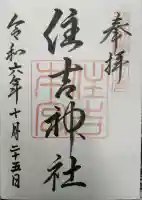 奉拝
住吉神社
令和六年十月二十五日